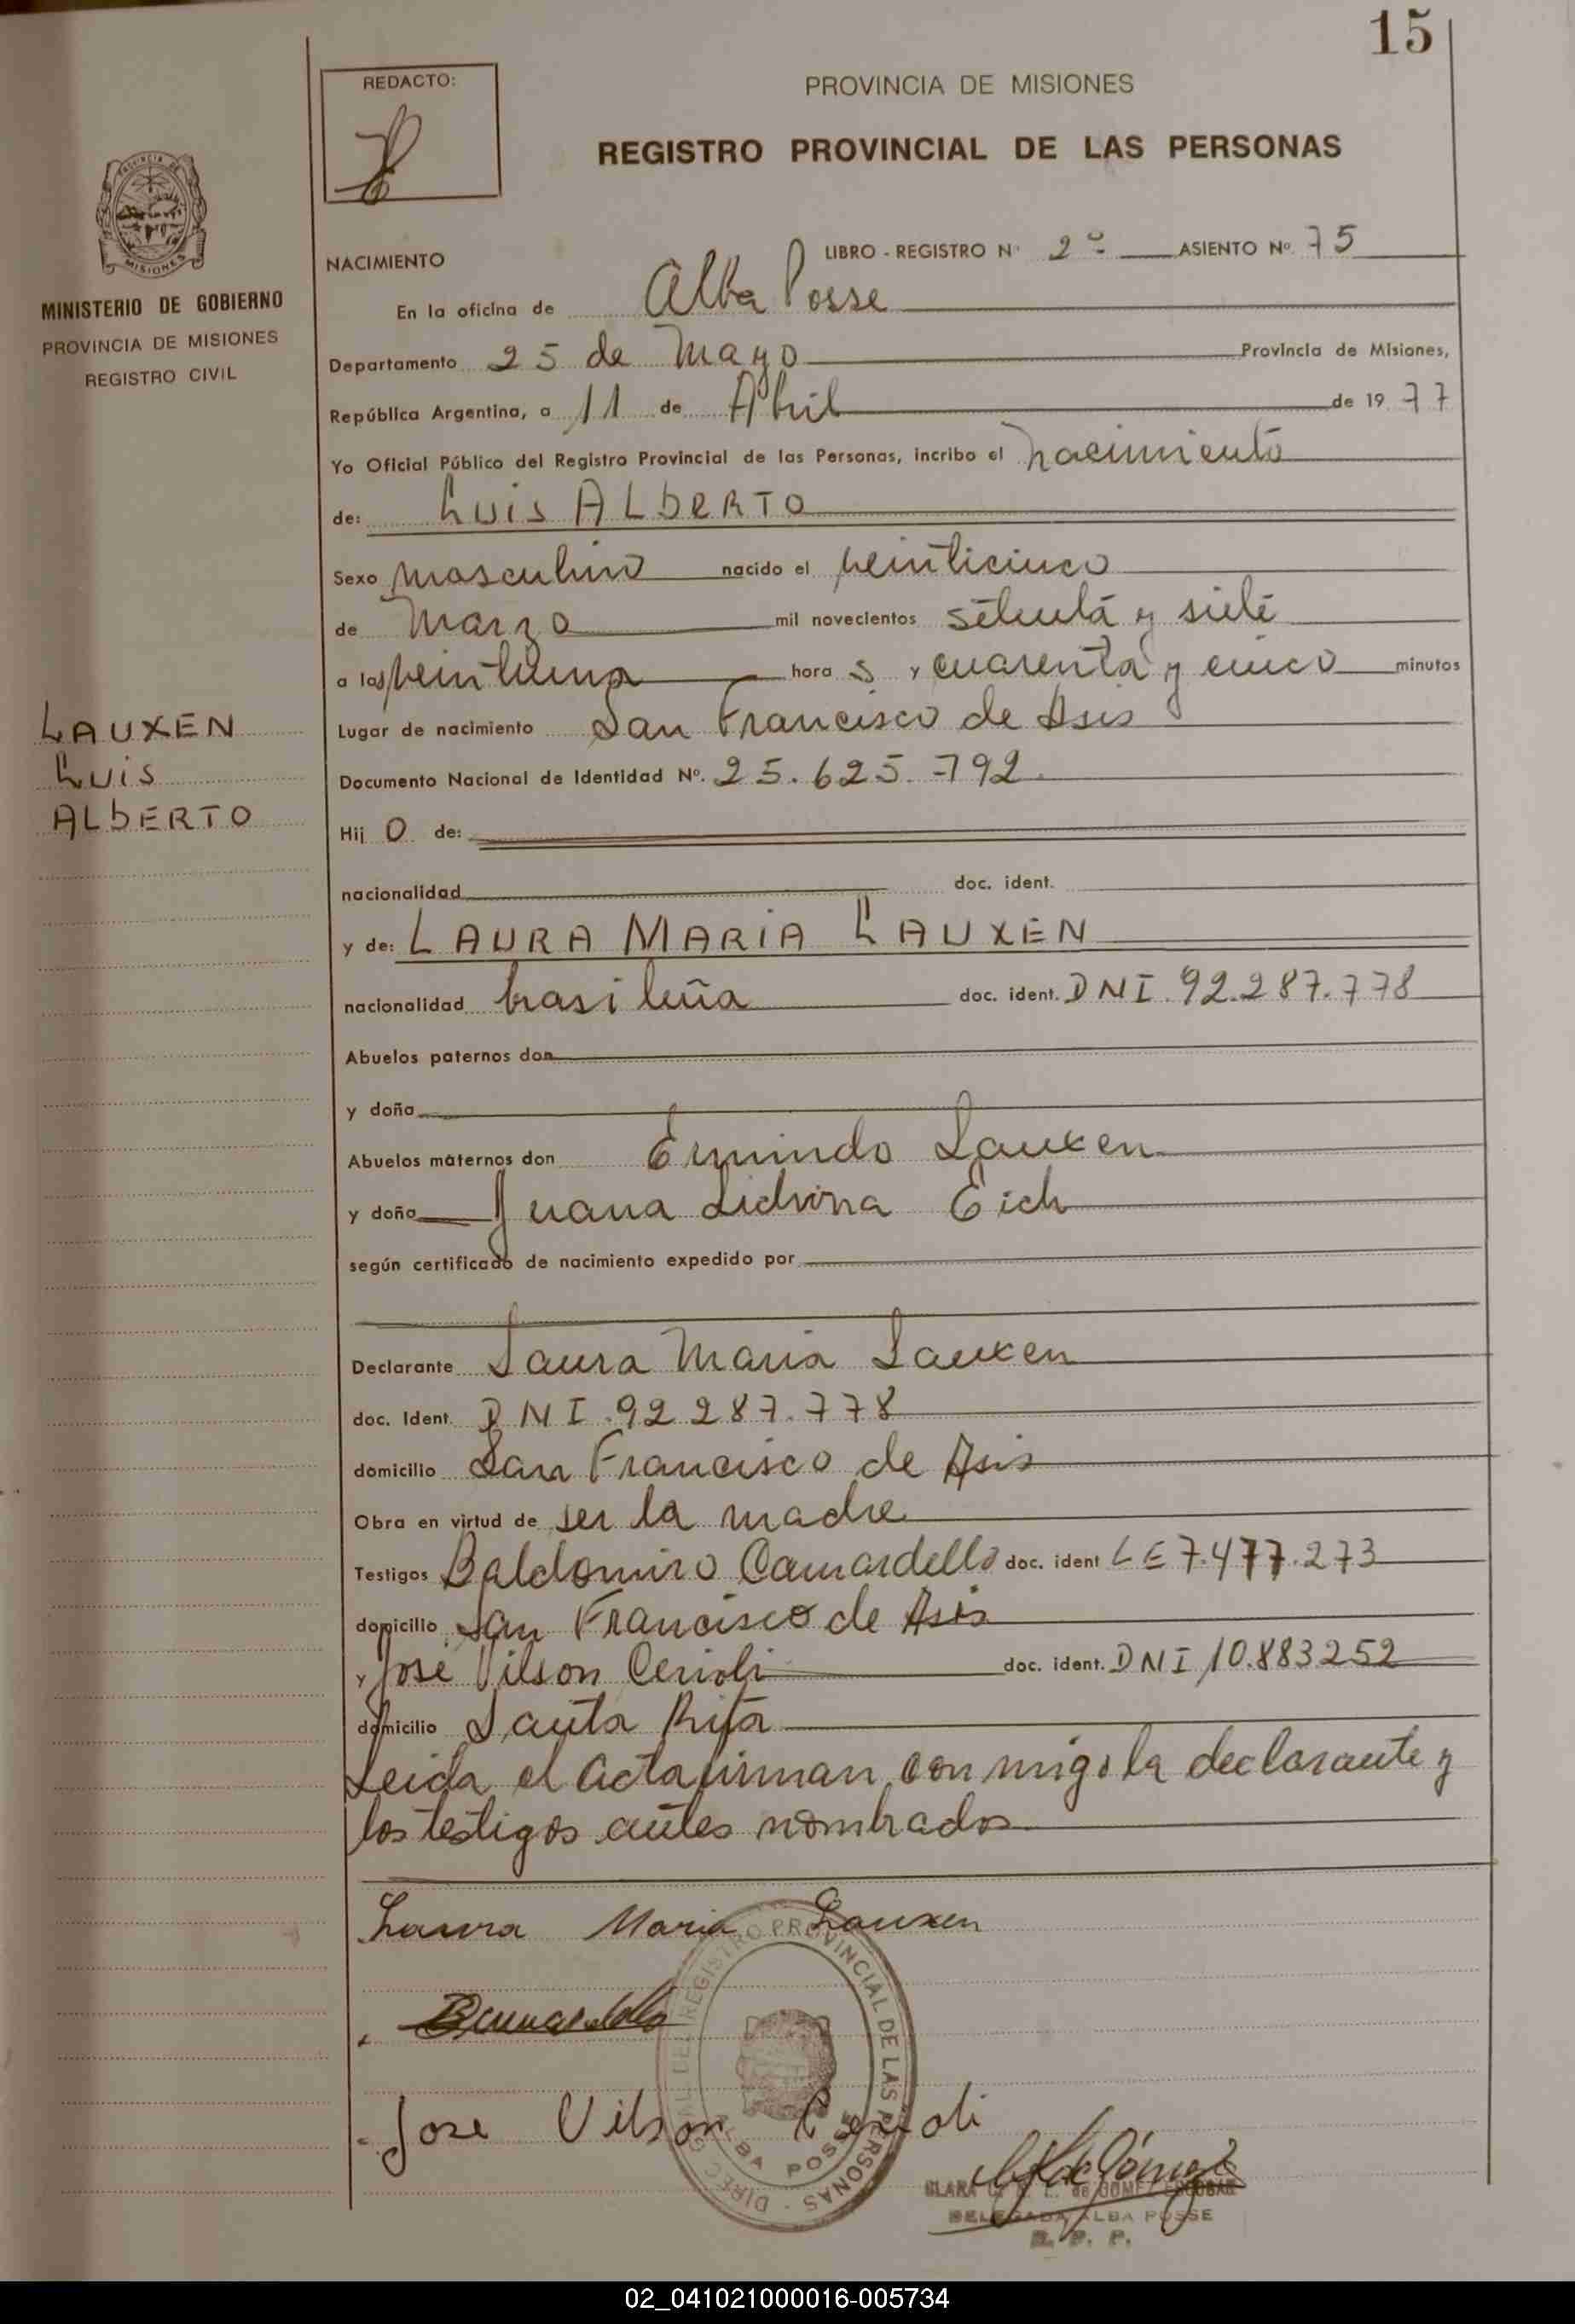 15
REDACTO:
PROVINCIA DE MISIONES
REGISTRO PROVINCIAL DE LAS PERSONAS
PROVINCIA DE
MISIONES
MINISTERIO DE GOBIERNO
PROVINCIA DE MISIONES
REGISTRO CIVIL
LAUXEN
Luis
ALbERTO
NACIMIENTO
LIBRO - REGISTRO Nº 2º ASIENTO Nº 75
En la oficina de Alba Posse
Departamento 25 de Mayo Provincia de Misiones,
República Argentina, a 11 de Abril de 1977
Yo Oficial Público del Registro Provincial de las Personas, incribo el nacimiento
de: Luis ALbeRTO
Sexo masculino nacido el veinticinco
de Marzo mil novecientos setenta y siete
a las veintiuna hora s y cuarenta y cinco minutos
Lugar de nacimiento San Francisco de Asis
Documento Nacional de Identidad Nº. 25.625.792
Hij O de:
nacionalidad doc. ident.
y de: LAURA MARIA LAUXEN
nacionalidad brasileña doc. ident. DNI 92.287.778
Abuelos paternos don
y doña
Abuelos maternos don Ermindo Lauxen
y doña Juana Lidvina Eich
según certificado de nacimiento expedido por
Declarante Laura Maria Lauxen
doc. Ident. DNI.92.287.778
domicilio San Francisco de Asis
Obra en virtud de ser la madre
Testigos Baldomiro Camardello doc. ident LE 7.477.273
domicilio San Francisco de Asis
y José Vilson Cerioli doc. ident. DNI 10.883252
domicilio Santa Rita
Leida el acta firman conmigo la declarante y
los testigos antes nombrados
Laura Maria Lauxen
Jose Vilson Cerioli
REGISTRO PROVINCIAL DE LAS PERSONAS
ALBA POSSE
CLARA de GOMEZ ESCOBAR
DELEGADA ALBA POSSE
R. P. P.
02_041021000016-005734